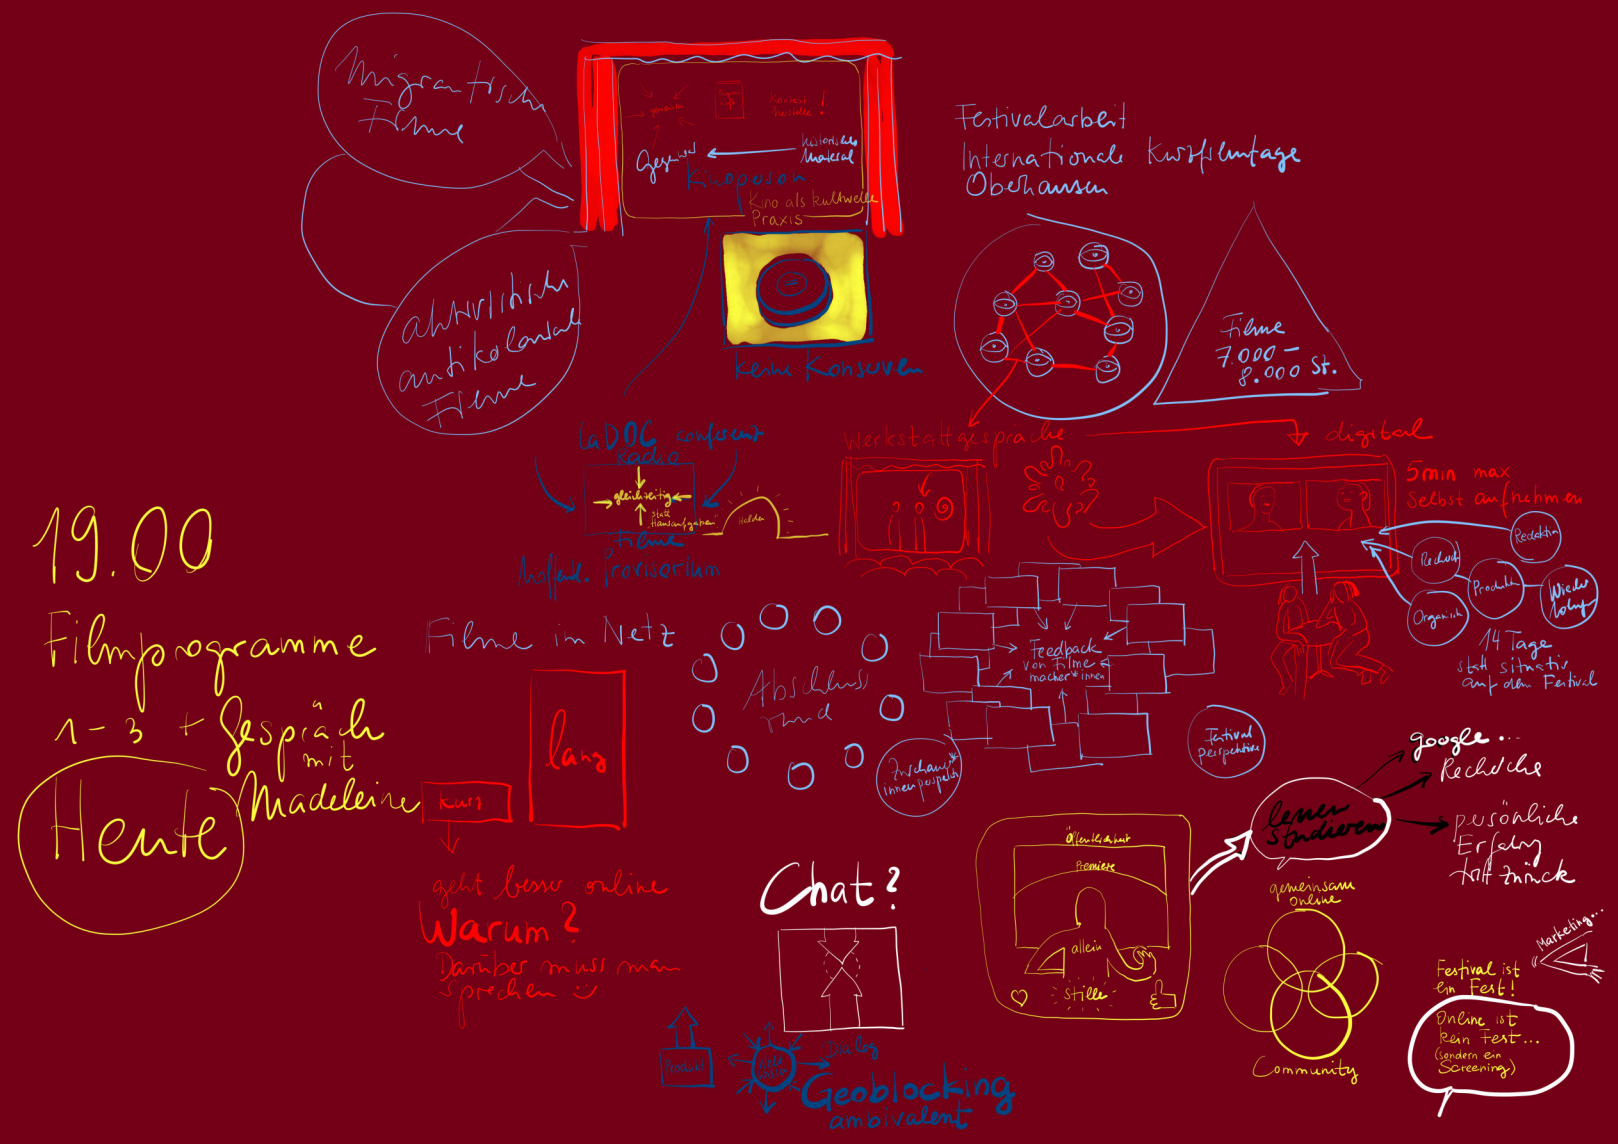 Migrantische
Filme
aktivistische
antikoloniale
Filme
Kontext
herstellen!
Gegenwart
historisches
Material
Kinoperson
Kino als kulturelle
Praxis
keine Konserven
Festivalarbeit
Internationale Kurzfilmtage
Oberhausen
Filme
7.000 –
8.000 St.
LaDOC conference
Radio
gleichzeitig
statt
Hausaufgaben"
Filme
Provisorium
Halden
Werkstattgespräche
digital
5min max
Selbst aufnehmen
Redaktion
Recherche
Produktion
Organisch
Wieder
holung
14 Tage
statt situativ
auf dem Festival
19.00
Filmprogramme
1-3 + Gespräch
mit
Madeleine
Heute
Filme im Netz
lang
kurz
geht besser online
Warum?
Darüber muss man
sprechen
Abschluss
rund
Feedback
von Filme
macher*innen
Zuschauer*
innenperspektive
Festival
perspektive
Chat?
Öffentlichkeit
Premiere
allein
Stille
lernen
studieren
google...
Recherche
persönliche
Erfahrung
tritt zurück
gemeinsam
online
Community
Marketing...
Festival ist
ein Fest!
Online ist
kein Fest...
(sondern ein
Screening)
Produkt
Dialog
Geoblocking
ambivalent